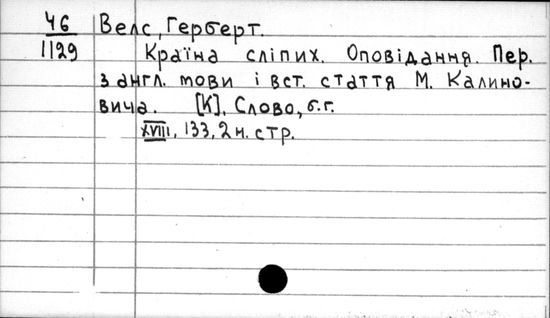 46 Велс, Герберт.
1129 Країна сліпих. Оповідання. Пер.
з англ. мови і вст. стаття М. Калино-
вича. [К]. Слово, б.г.
XVIII, 133, 2 н. стр.